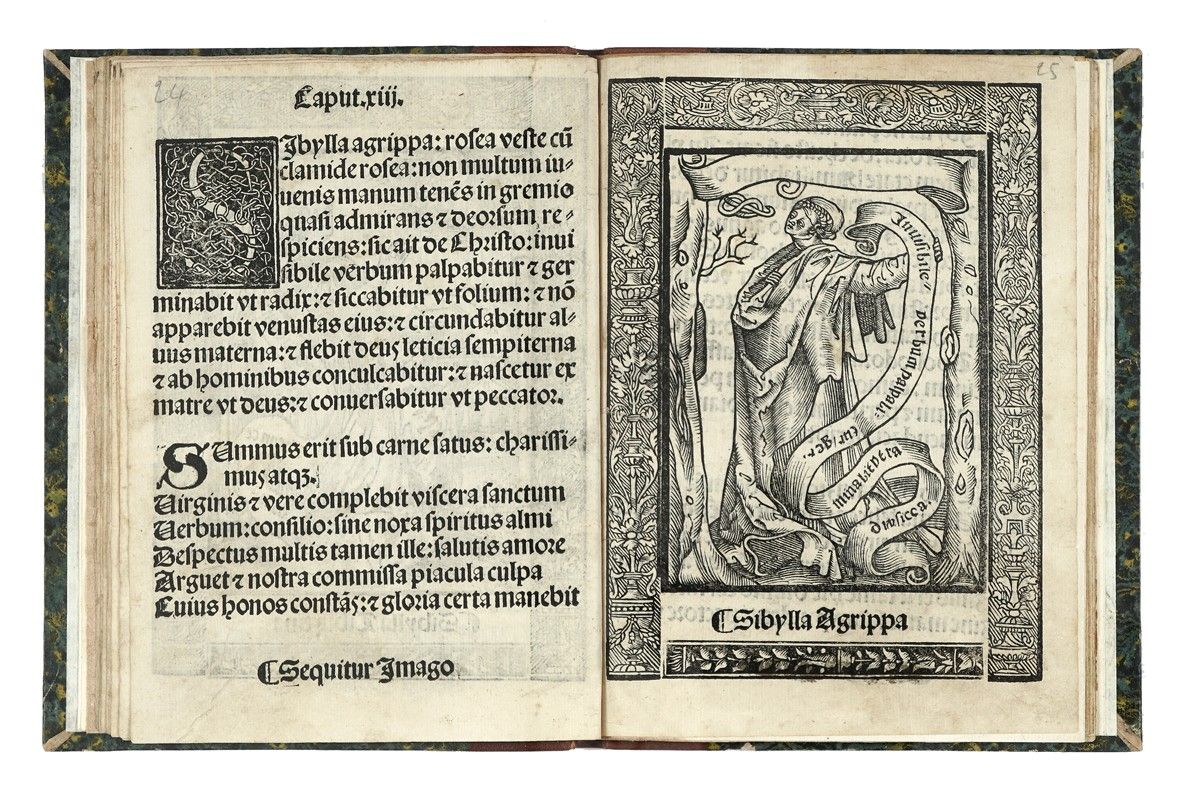 24
Caput.xiij.
SIbylla agrippa: rosea veste cũ
clamide rosea: non multum iu-
uenis manum tenẽs in gremio
quasi admirans ⁊ deorsum re-
spiciens: sic ait de Christo: inui
sibile verbum palpabitur ⁊ ger
minabit vt radix: ⁊ siccabitur vt folium: ⁊ nõ
apparebit venustas eius: ⁊ circundabitur al-
uus materna: ⁊ flebit deus leticia sempiterna
⁊ ab hominibus conculcabitur: ⁊ nascetur ex
matre vt deus: ⁊ conuersabitur vt peccator.
SUmmus erit sub carne satus: charissi-
mus atqꝫ.
Uirginis ⁊ vere complebit viscera sanctum
Uerbum: consilio: sine noxa spiritus almi
Despectus multis tamen ille: salutis amore
Arguet ⁊ nostra commissa piacula culpa
Cuius honos constãs: ⁊ gloria certa manebit
¶ Sequitur Imago
25
Inuisibile verbum palpabi:
tur ⁊ ger
minabit vt ra
¶ Sibylla Agrippa